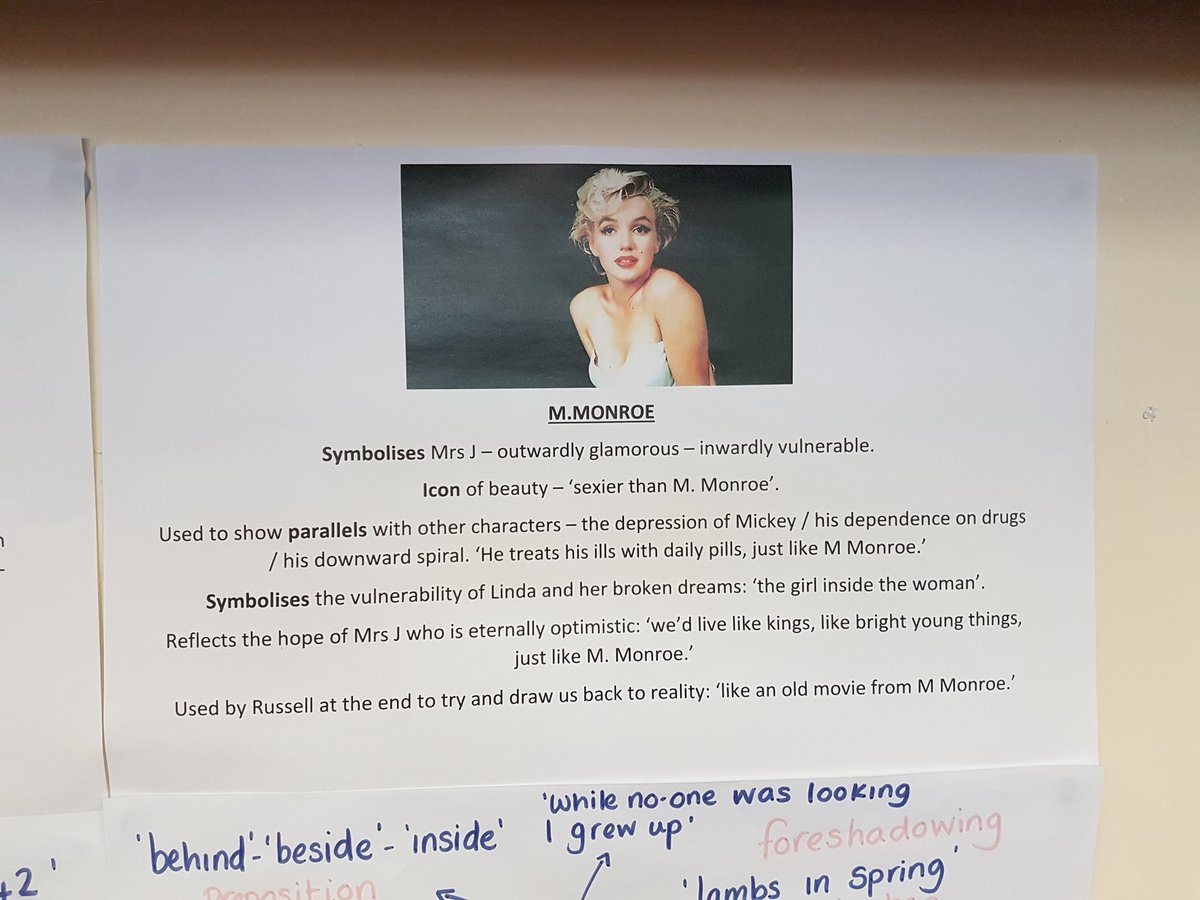 M.MONROE
Symbolises Mrs J – outwardly glamorous – inwardly vulnerable.
Icon of beauty – ‘sexier than M. Monroe’.
Used to show parallels with other characters – the depression of Mickey / his dependence on drugs
/ his downward spiral. ‘He treats his ills with daily pills, just like M Monroe.’
Symbolises the vulnerability of Linda and her broken dreams: ‘the girl inside the woman’.
Reflects the hope of Mrs J who is eternally optimistic: ‘we’d live like kings, like bright young things,
just like M. Monroe.’
Used by Russell at the end to try and draw us back to reality: ‘like an old movie from M Monroe.’
'while no-one was looking
I grew up'
'behind'-'beside'-'inside'
foreshadowing
Preposition
'lambs in spring'